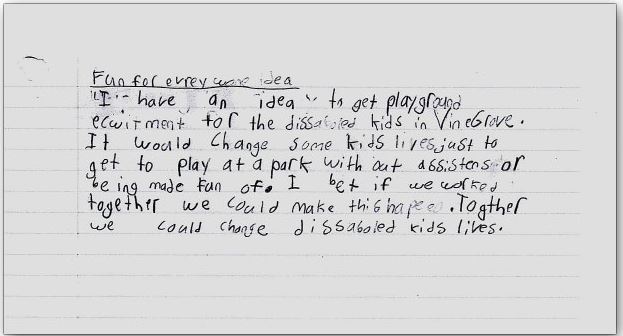 Fun for evrey wone idea
"I" have an idea to get playground
ecuitment for the dissabled kids in VineGrove.
It would change some kids lives, just to
get to play at a park with out assistens or
being made fun of. I bet if we worked
together we could make this hapen. Togther
we could change dissabaled kids lives.